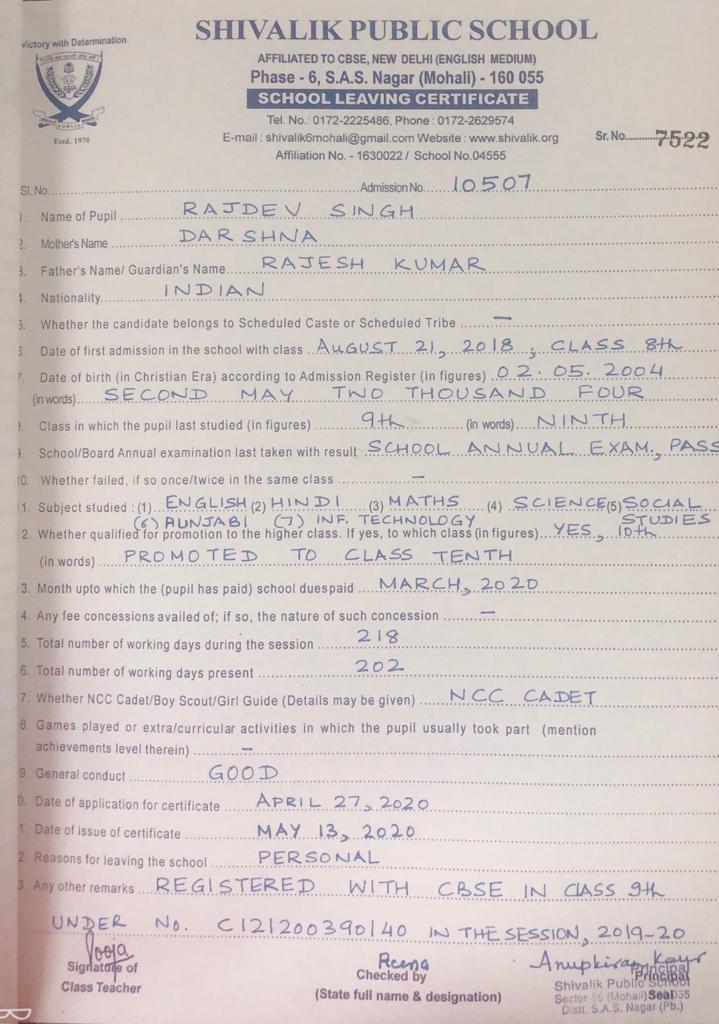 SHIVALIK PUBLIC SCHOOL
Victory with Determination
AFFILIATED TO CBSE, NEW DELHI (ENGLISH MEDIUM)
Phase - 6, S.A.S. Nagar (Mohali) - 160 055
SCHOOL LEAVING CERTIFICATE
Estd. 1970
Tel. No.: 0172-2225486, Phone : 0172-2629574
E-mail : shivalik6mohali@gmail.com Website : www.shivalik.org
Sr. No. 7522
Affiliation No. - 1630022 / School No.04555
Sl. No. Admission No. 10507
1. Name of Pupil RAJDEV SINGH
2. Mother's Name DARSHNA
3. Father's Name/ Guardian's Name RAJESH KUMAR
4. Nationality INDIAN
5. Whether the candidate belongs to Scheduled Caste or Scheduled Tribe —
6. Date of first admission in the school with class AUGUST 21, 2018 ; CLASS 8th
7. Date of birth (in Christian Era) according to Admission Register (in figures) 02.05.2004
(in words) SECOND MAY TWO THOUSAND FOUR
8. Class in which the pupil last studied (in figures) 9th (in words) NINTH
9. School/Board Annual examination last taken with result SCHOOL ANNUAL EXAM., PASS
0. Whether failed, if so once/twice in the same class —
1. Subject studied : (1) ENGLISH (2) HINDI (3) MATHS (4) SCIENCE (5) SOCIAL STUDIES
(6) PUNJABI (7) INF. TECHNOLOGY
2. Whether qualified for promotion to the higher class. If yes, to which class (in figures) YES, 10th
(in words) PROMOTED TO CLASS TENTH
3. Month upto which the (pupil has paid) school duespaid MARCH, 2020
4. Any fee concessions availed of; if so, the nature of such concession —
5. Total number of working days during the session 218
6. Total number of working days present 202
7. Whether NCC Cadet/Boy Scout/Girl Guide (Details may be given) NCC CADET
8. Games played or extra/curricular activities in which the pupil usually took part (mention
achievements level therein) —
9. General conduct GOOD
0. Date of application for certificate APRIL 27, 2020
1. Date of issue of certificate MAY 13, 2020
2. Reasons for leaving the school PERSONAL
3. Any other remarks REGISTERED WITH CBSE IN CLASS 9th
UNDER No. C121200390140 IN THE SESSION, 2019-20
Pooja
Reena
Anupkiran Kaur
Signature of
Class Teacher
Checked by
(State full name & designation)
Principal
Principal
Shivalik Public School
Seal
Distt. S.A.S. Nagar (Pb.)